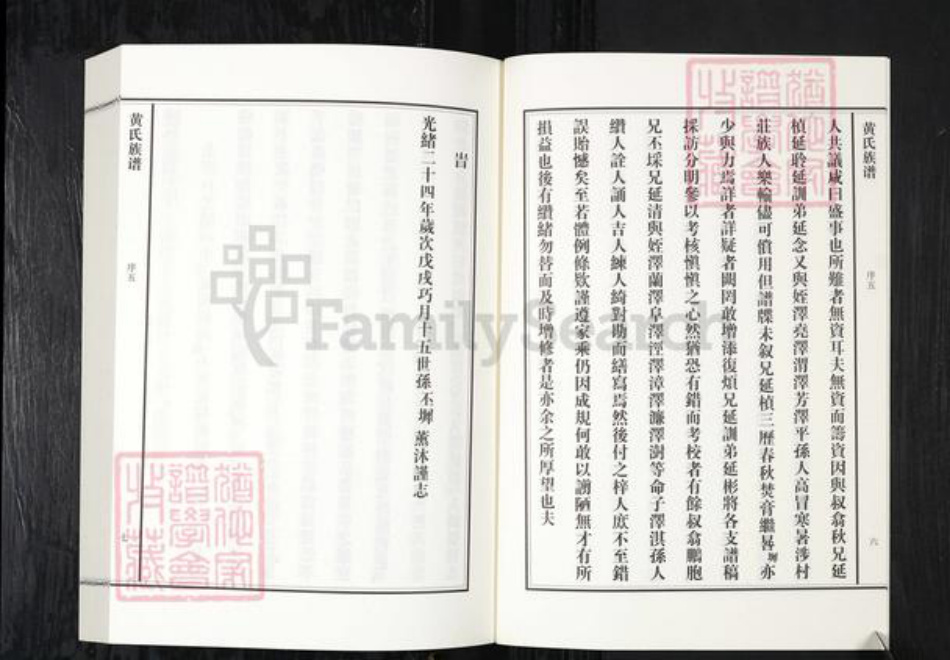 黄氏族谱
序五
六
人共議咸曰盛事也所難者無資耳夫無資而籌資因與叔翕秋兄延
楨延聆延訓弟延念又與姪澤堯澤渭澤芳澤平孫人高冒寒暑涉村
莊族人樂輸儘可償用但譜牒未叙兄延楨三歷春秋焚膏繼晷墀亦
少與力焉詳者詳疑者闕罔敢增添復煩兄延訓弟延彬將各支譜稿
採訪分明參以考核慎慎之心然猶恐有錯而考校者有餘叔翕鵬胞
兄丕埰兄延清與姪澤蘭澤阜澤涇澤漳澤濂澤澍等命子澤淇孫人
纘人詮人誦人吉人練人綺對勘而繕寫焉然後付之梓人庶不至錯
誤貽憾矣至若體例條欵謹遵家乘仍因成規何敢以謭陋無才有所
損益也後有纘緒勿替而及時增修者是亦余之所厚望也夫
旹
光緒二十四年歲次戊戌巧月十五世孫丕墀 薰沐謹志
黄氏族谱
序五
七
FamilySearch